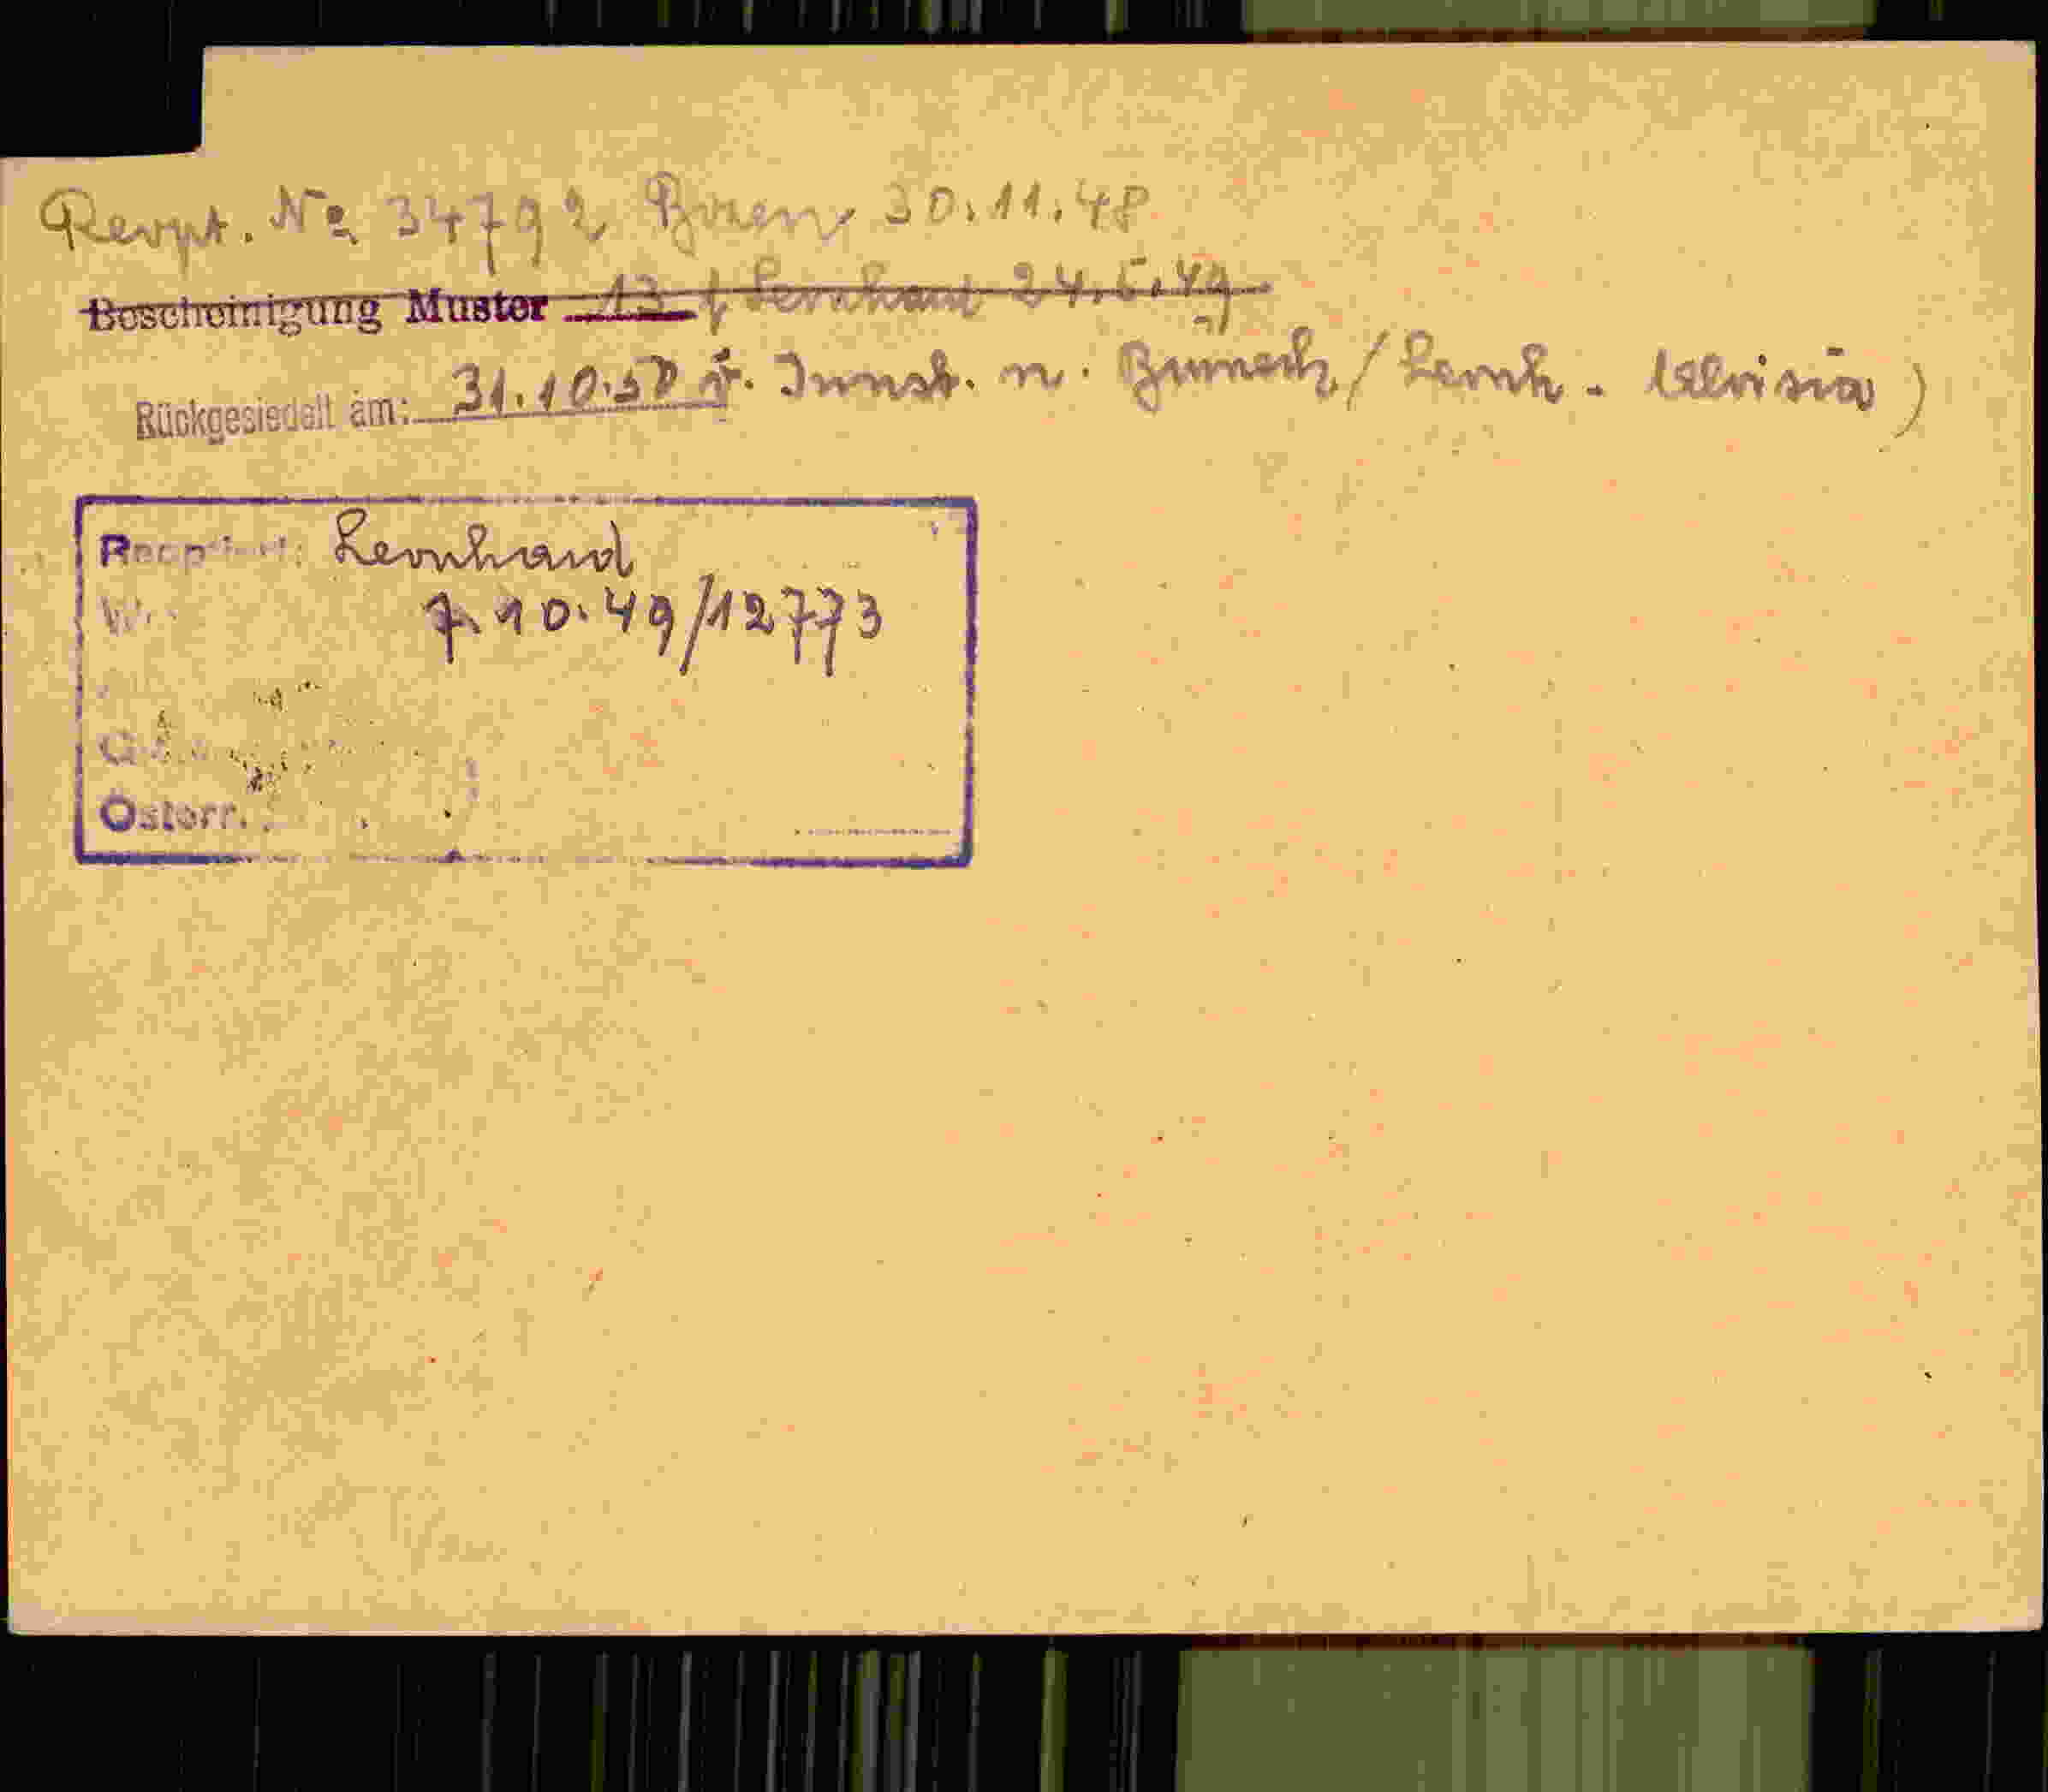 Reopt. № 34792 Bozen 30.11.48
Bescheinigung Muster 13 f Leonhard 24.5.49
Rückgesiedelt am: 31.10.50 v. Innsb. n. Bruneck (Leonh.
Reoptiert: Leonhard
7.10.49/12773
Österr.